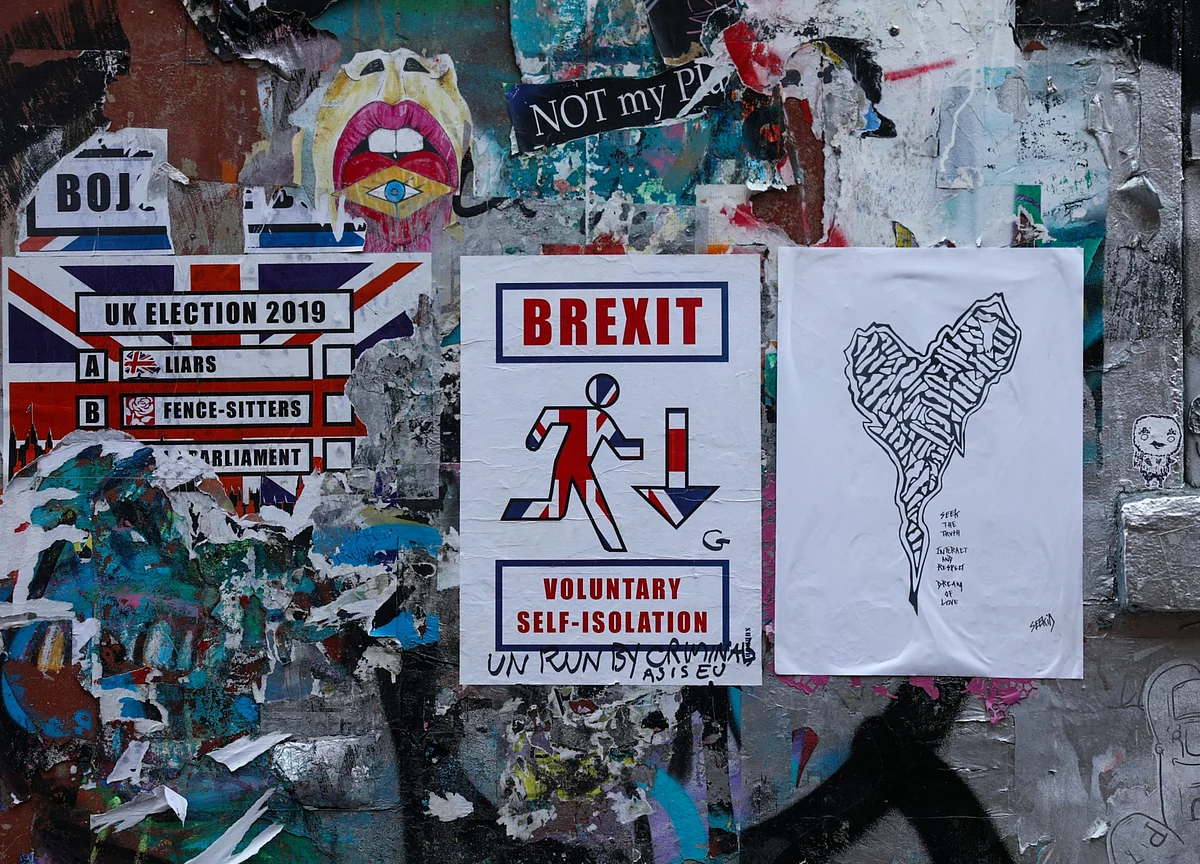 NOT my
BOJ
UK ELECTION 2019
A LIARS
B FENCE-SITTERS
PARLIAMENT
BREXIT
G
VOLUNTARY
SELF-ISOLATION
UN RUN BY CRIMINALS
AS IS EU
SEEK
THE
TRUTH
INTERACT
AND
RESPECT
DREAM
OF
LOVE